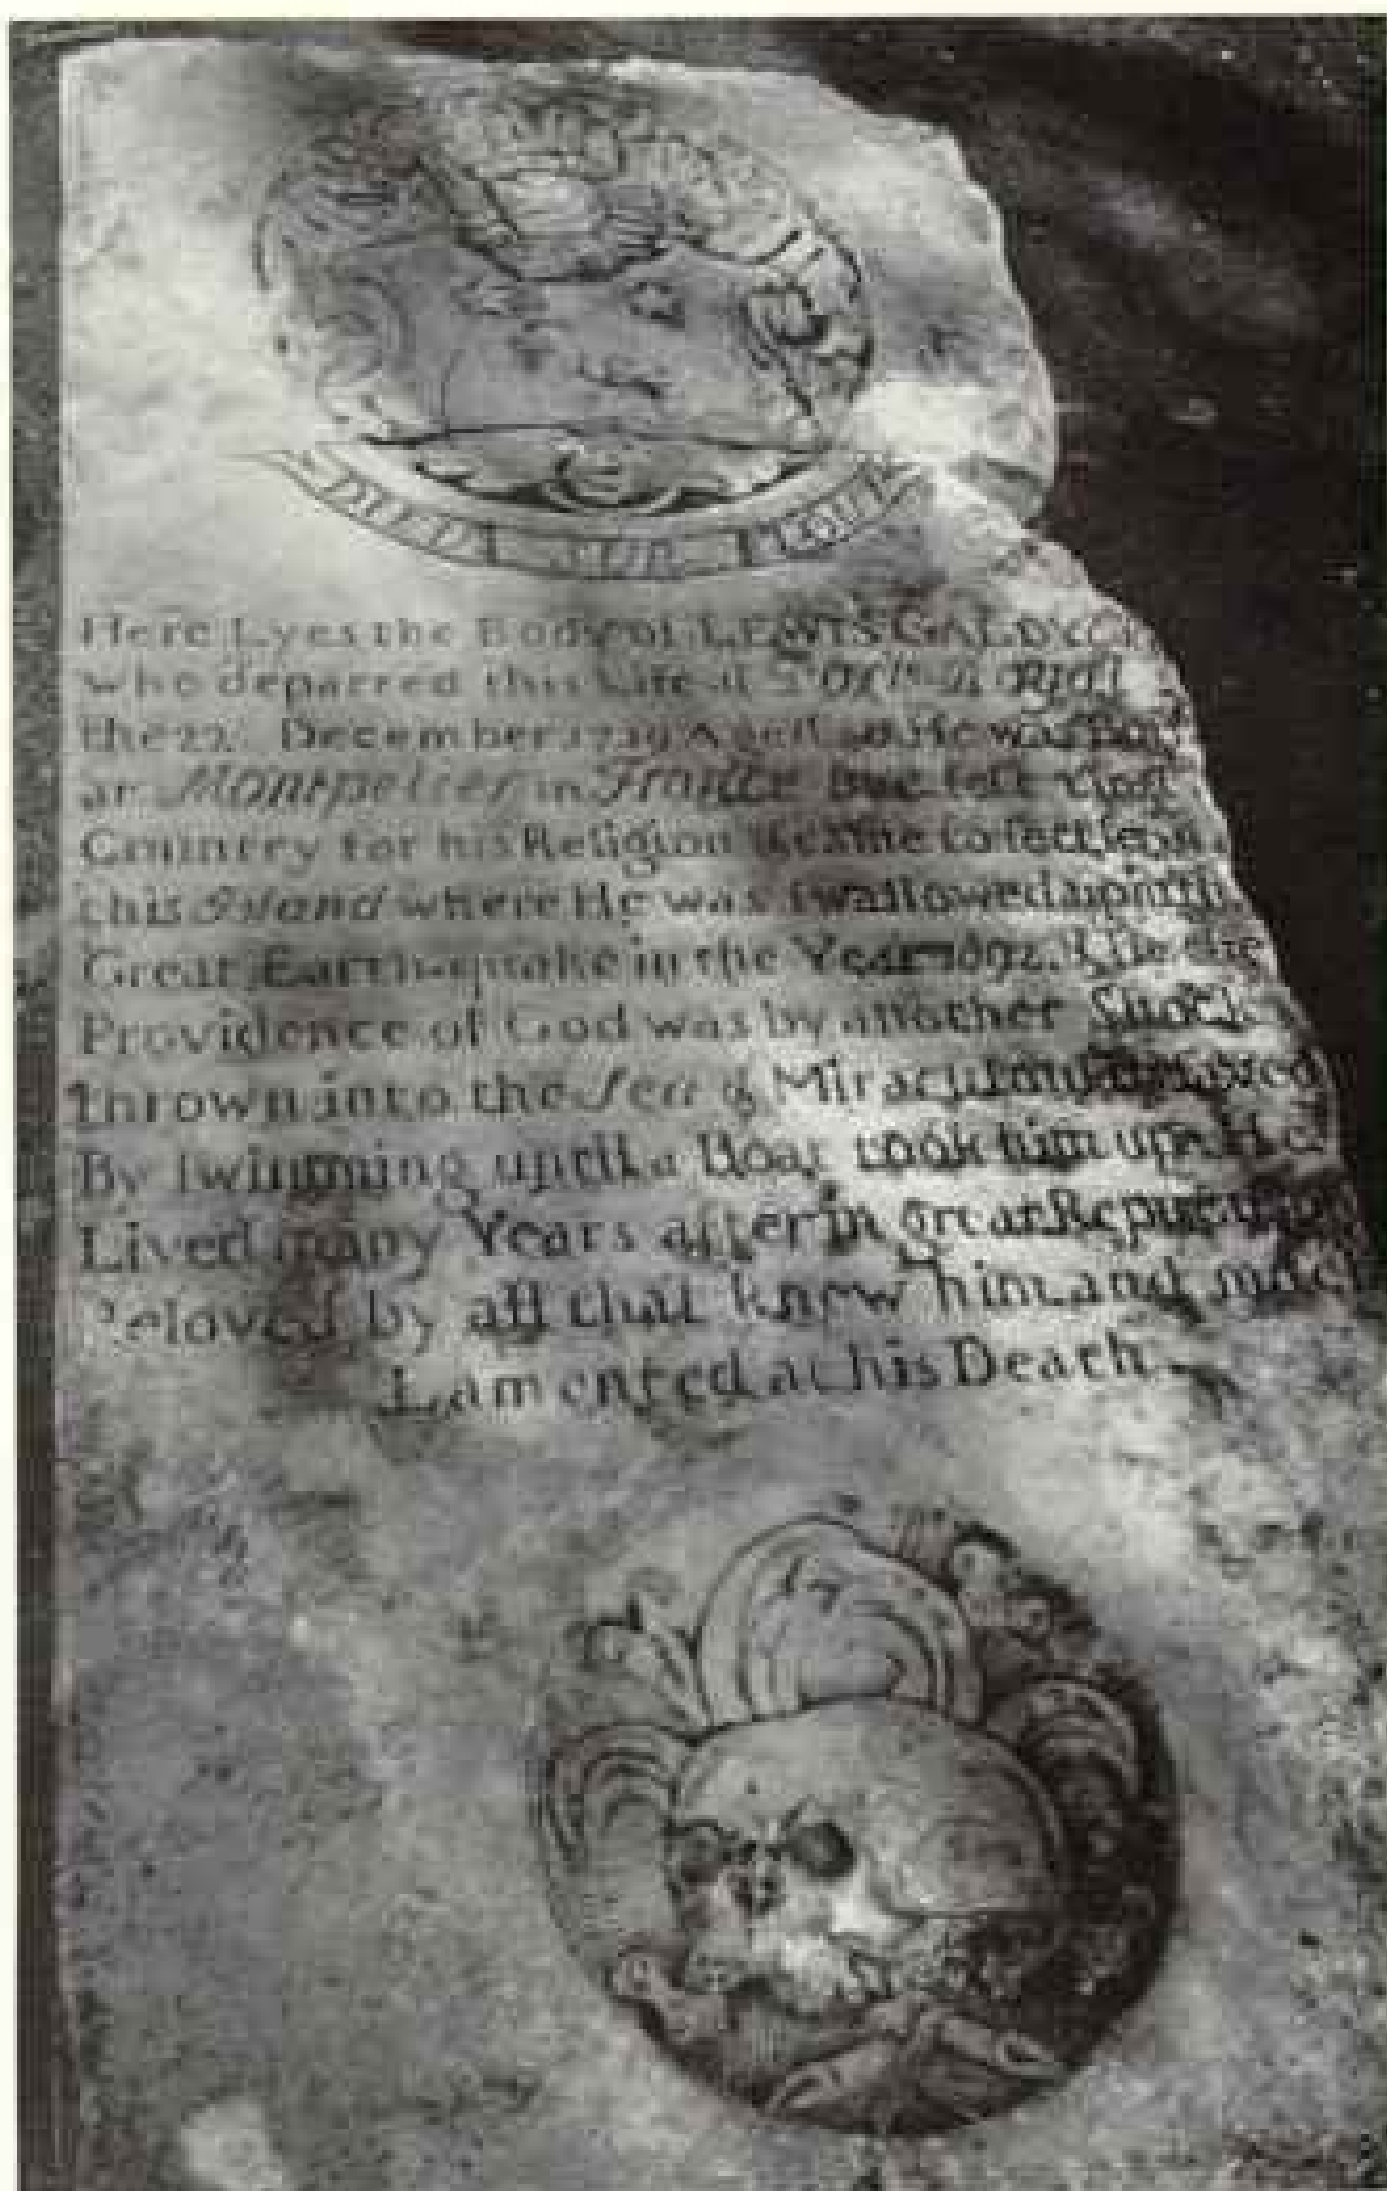 DIEU SUR TOUT
Here Lyes the Body of LEWIS GALDY
who departed this Life at Port Royal
the 22 December 1739 Aged 80 He was Born
at Montpelier in France but left that
Country for his Religion & came to settle in
this Island where He was swallowed up in the
Great Earth-quake in the Year 1692. & by the
Providence of God was by another Shock
thrown into the Sea & Miraculously saved
By swimming until a Boat took him up. He
Lived many Years after in great Reputation
Beloved by all that knew him and much
Lamented at his Death